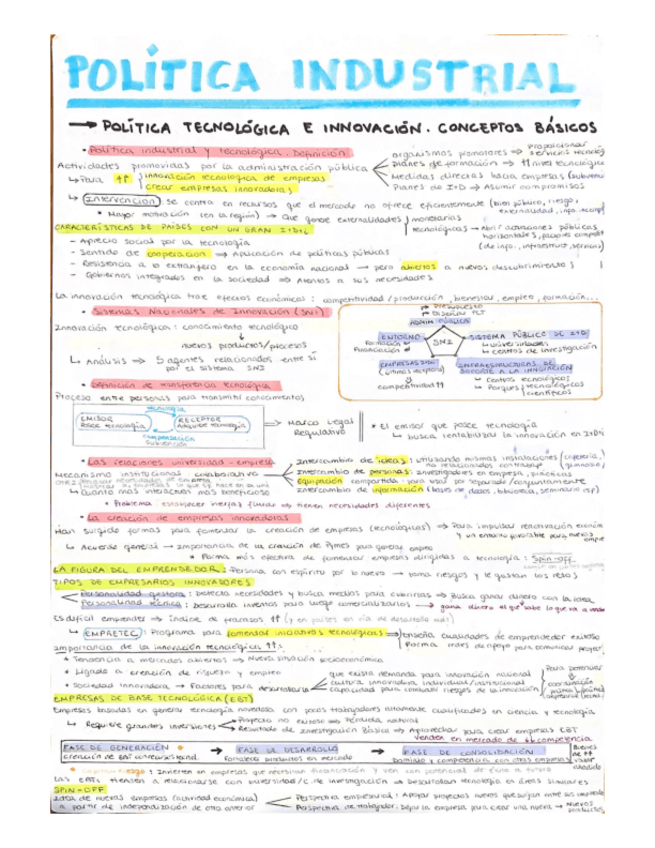 POLÍTICA INDUSTRIAL
→ POLÍTICA TECNOLÓGICA E INNOVACIÓN. CONCEPTOS BÁSICOS
• Política industrial y tecnológica. Definición
Actividades promovidas por la administración pública
organismos promotores ⇒ Proporcionar servicios
planes de formación ⇒ ↑↑ nivel tecnológico
Medidas directas hacia empresas
Planes de I+D → Asumir compromisos
↳ Para ↑↑ innovación tecnológica de empresas
crear empresas innovadoras
↳ Intervención: se centra en recursos que el mercado no ofrece eficientemente (bien público, riesgo,
externalidad, info.
• Mayor motivación (en la región) → Que genere externalidades
monetarias
tecnológicas → Abrir actuaciones públicas
horizontales,
(de info, infraestruct, servicios)
CARACTERÍSTICAS DE PAÍSES CON UN GRAN I+D+i
- Aprecio social por la tecnología
- Sentido de cooperación ⇒ Aplicación de políticas públicas
- Resistencia a lo extranjero en la economía nacional → pero abiertos a nuevos descubrimientos
- Gobiernos integrados en la sociedad → Atentos a sus necesidades
La innovación tecnológica trae efectos económicos: competitividad/producción, bienestar, empleo, formación...
• Sistemas Nacionales de Innovación (SNI)
Innovación tecnológica: conocimiento tecnológico
↓
nuevos productos/procesos
↳ Análisis → 5 agentes relacionados entre sí
por el sistema SNI
→ Presupuesto
ADMÓN PÚBLICA
ENTORNO
SNI
SISTEMA PÚBLICO DE I+D
↳ universidades
↳ centros de investigación
EMPRESAS
competitividad ↑↑
INFRAESTRUCTURAS DE
SOPORTE A LA INNOVACIÓN
↳ Centros tecnológicos
↳ Parques tecnológicos
científicos
• Definición de transferencia tecnológica
Proceso entre personas para transmitir conocimientos
Tecnología
EMISOR
Posee tecnología
RECEPTOR
Adquiere tecnología
Compensación
Subvención
Marco Legal
Regulativo
* El emisor que posee tecnología
↳ busca rentabilizar la innovación en I+D+i
• Las relaciones universidad - empresa
Mecanismo institucional colaborativo
↳ Cuanto más interactivo más beneficioso
Intercambio de ideas: utilizando mismas instalaciones (cafetería,
gimnasio)
Intercambio de personas: investigadores en empresa, prácticas
Equipación compartida: para usos por separado/conjuntamente
Intercambio de información (bases de datos, biblioteca, seminario esp)
• Problema: establecer metas → tienen necesidades diferentes
• La creación de empresas innovadoras
Han surgido formas para fomentar la creación de empresas (tecnológicas) → Para impulsar renovación
y un entorno favorable para nuevas
↳ Acuerdo general → Importancia de la creación de Pymes para generar empleo
* Forma más efectiva de fomentar empresas dirigidas a tecnología: Spin-off
LA FIGURA DEL EMPRENDEDOR: Persona con espíritu por lo nuevo → toma riesgos y le gustan los retos
TIPOS DE EMPRESARIOS INNOVADORES
→ Personalidad gestora: Detecta necesidades y busca medios para cubrirlas → Busca ganar dinero con la idea
→ Personalidad técnica: Desarrolla inventos para luego comercializarlos → gana dinero el que sabe lo que va a
Es difícil emprender → Índice de fracasos ↑↑ (y en países en vía de desarrollo más)
↳ EMPRETEC: Programa para fomentar iniciativas tecnológicas
Enseña cualidades de emprendedor exitoso
Forma redes de apoyo para comunicar
Importancia de la innovación tecnológica ↑↑:
* Tendencia a mercados abiertos → Nueva situación socioeconómica
* Ligado a creación de riqueza y empleo
* Sociedad innovadora → Factores para desarrollarla
que exista demanda para innovación nacional
cultura innovadora individual/institucional
capacidad para combatir riesgos de la innovación
Para potenciar
↓
coordinación
EMPRESAS DE BASE TECNOLÓGICA (EBT)
Empresas basadas en generar tecnología novedosa con pocos trabajadores altamente cualificados en ciencia y tecnología
↳ Requiere grandes inversiones
Proyecto no exitoso → Pérdida natural
Resultado de Investigación Básica → Aprovechar para crear empresas EBT
Venden en mercado de
competencia
FASE DE GENERACIÓN
Creación de EBT
→ FASE DE DESARROLLO
Fortalece productos en mercado
→ FASE DE CONSOLIDACIÓN
Dominio y competencia con otras empresas
Bienes
de ↑↑
valor
añadido
riesgo: Invierten en empresas que necesitan financiación y ven con potencial de
Las EBTs tienden a relacionarse con universidad/c. de investigación → Desarrollan tecnología en áreas similares
SPIN-OFF
Idea de nuevas empresas (actividad económica)
a partir de independización de otra anterior
Perspectiva empresarial: Apoyar proyectos nuevos que surjan entre sus
Perspectiva de trabajador: Dejar la empresa para crear una nueva → Nuevos
productos